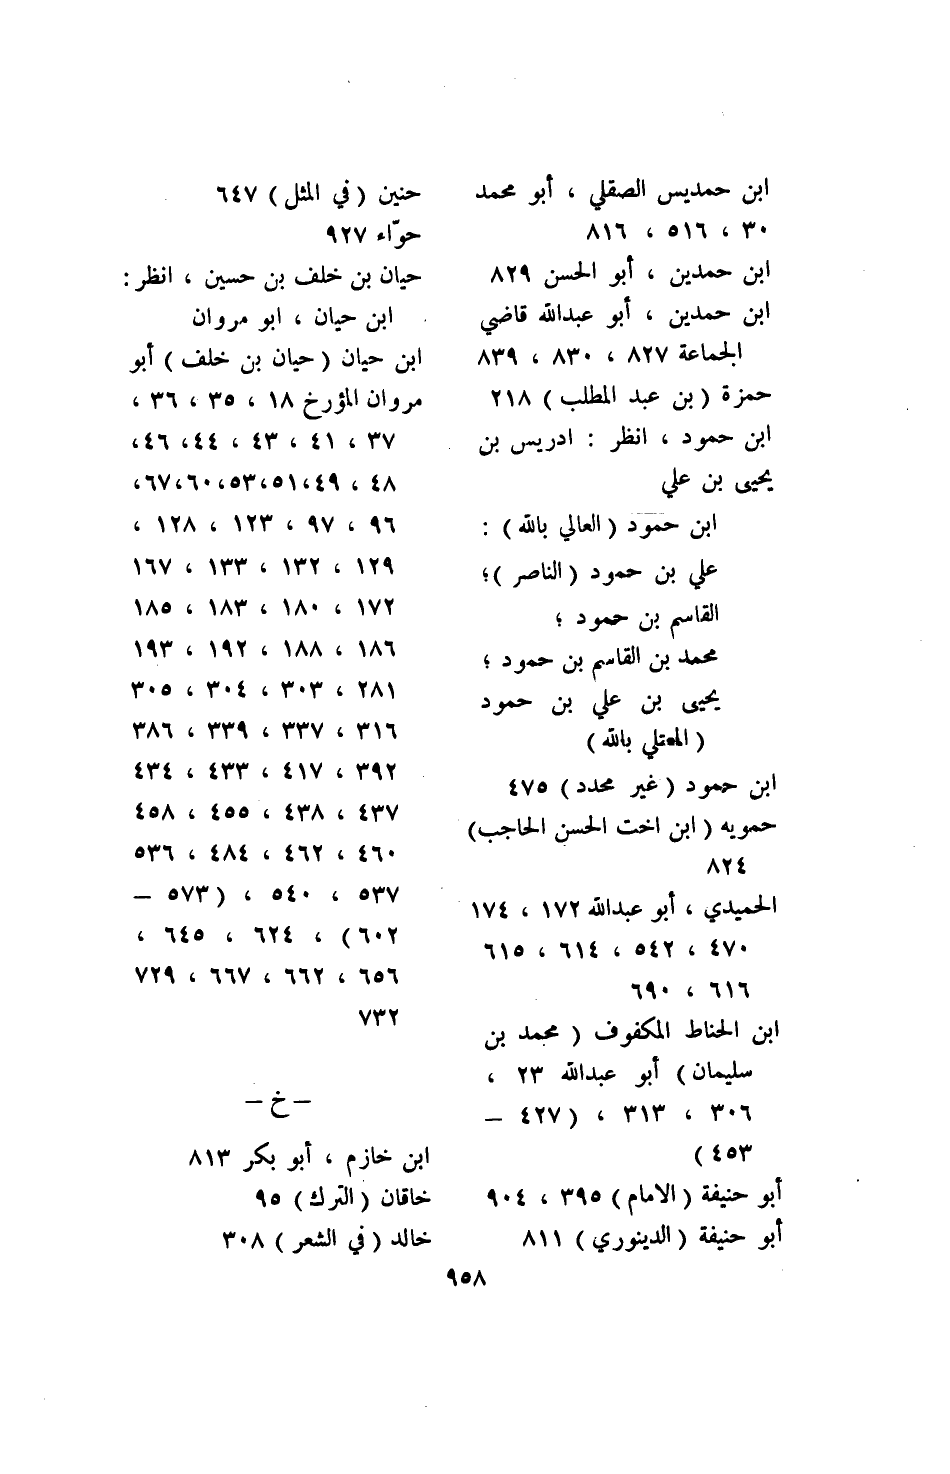 ابن حمديس الصقلي ، أبو محمد
٣٠ ، ٥١٦ ، ٨١٦
ابن حمدين ، أبو الحسن ٨٢٩
ابن حمدين ، أبو عبدالله قاضي
الجماعة ٨٢٧ ، ٨٣٠ ، ٨٣٩
حمزة ( بن عبد المطلب ) ٢١٨
ابن حمود ، انظر : ادريس بن
يحيى بن علي
ابن حمود ( العالي بالله ) :
علي بن حمود ( الناصر )؛
القاسم بن حمود ؛
محمد بن القاسم بن حمود ؛
يحيى بن علي بن حمود
( المعتلي بالله )
ابن حمود ( غير محدد ) ٤٧٥
حمويه ( ابن اخت الحسن الحاجب)
٨٢٤
الحميدي ، أبو عبدالله ١٧٢ ، ١٧٤
٤٧٠ ، ٥٤٢ ، ٦١٤ ، ٦١٥
٦١٦ ، ٦٩٠
ابن الحناط المكفوف ( محمد بن
سليمان ) أبو عبدالله ٢٣ ،
٣٠٦ ، ٣١٣ ، ( ٤٢٧ –
٤٥٣ )
أبو حنيفة ( الامام ) ٣٩٥ ، ٩٠٤
أبو حنيفة ( الدينوري ) ٨١١
حنين ( في المثل ) ٦٤٧
حوّاء ٩٢٧
حيان بن خلف بن حسين ، انظر :
ابن حيان ، ابو مروان
ابن حيان ( حيان بن خلف ) أبو
مروان المؤرخ ١٨ ، ٣٥ ، ٣٦ ،
٣٧ ، ٤١ ، ٤٣ ، ٤٤، ٤٦،
٤٨ ، ٤٩،٥١،٥٣،٦٠،٦٧،
٩٦ ، ٩٧ ، ١٢٣ ، ١٢٨ ،
١٢٩ ، ١٣٢ ، ١٣٣ ، ١٦٧
١٧٢ ، ١٨٠ ، ١٨٣ ، ١٨٥
١٨٦ ، ١٨٨ ، ١٩٢ ، ١٩٣
٢٨١ ، ٣٠٣ ، ٣٠٤ ، ٣٠٥
٣١٦ ، ٣٣٧ ، ٣٣٩ ، ٣٨٦
٣٩٢ ، ٤١٧ ، ٤٣٣ ، ٤٣٤
٤٣٧ ، ٤٣٨ ، ٤٥٥ ، ٤٥٨
٤٦٠ ، ٤٦٢ ، ٤٨٤ ، ٥٣٦
٥٣٧ ، ٥٤٠ ، ( ٥٧٣ –
٦٠٢) ، ٦٢٤ ، ٦٤٥ ،
٦٥٦ ، ٦٦٢ ، ٦٦٧ ، ٧٢٩
٧٣٢
– خ –
ابن خازم ، أبو بكر ٨١٣
خاقان ( الترك ) ٩٥
خالد ( في الشعر ) ٣٠٨
٩٥٨